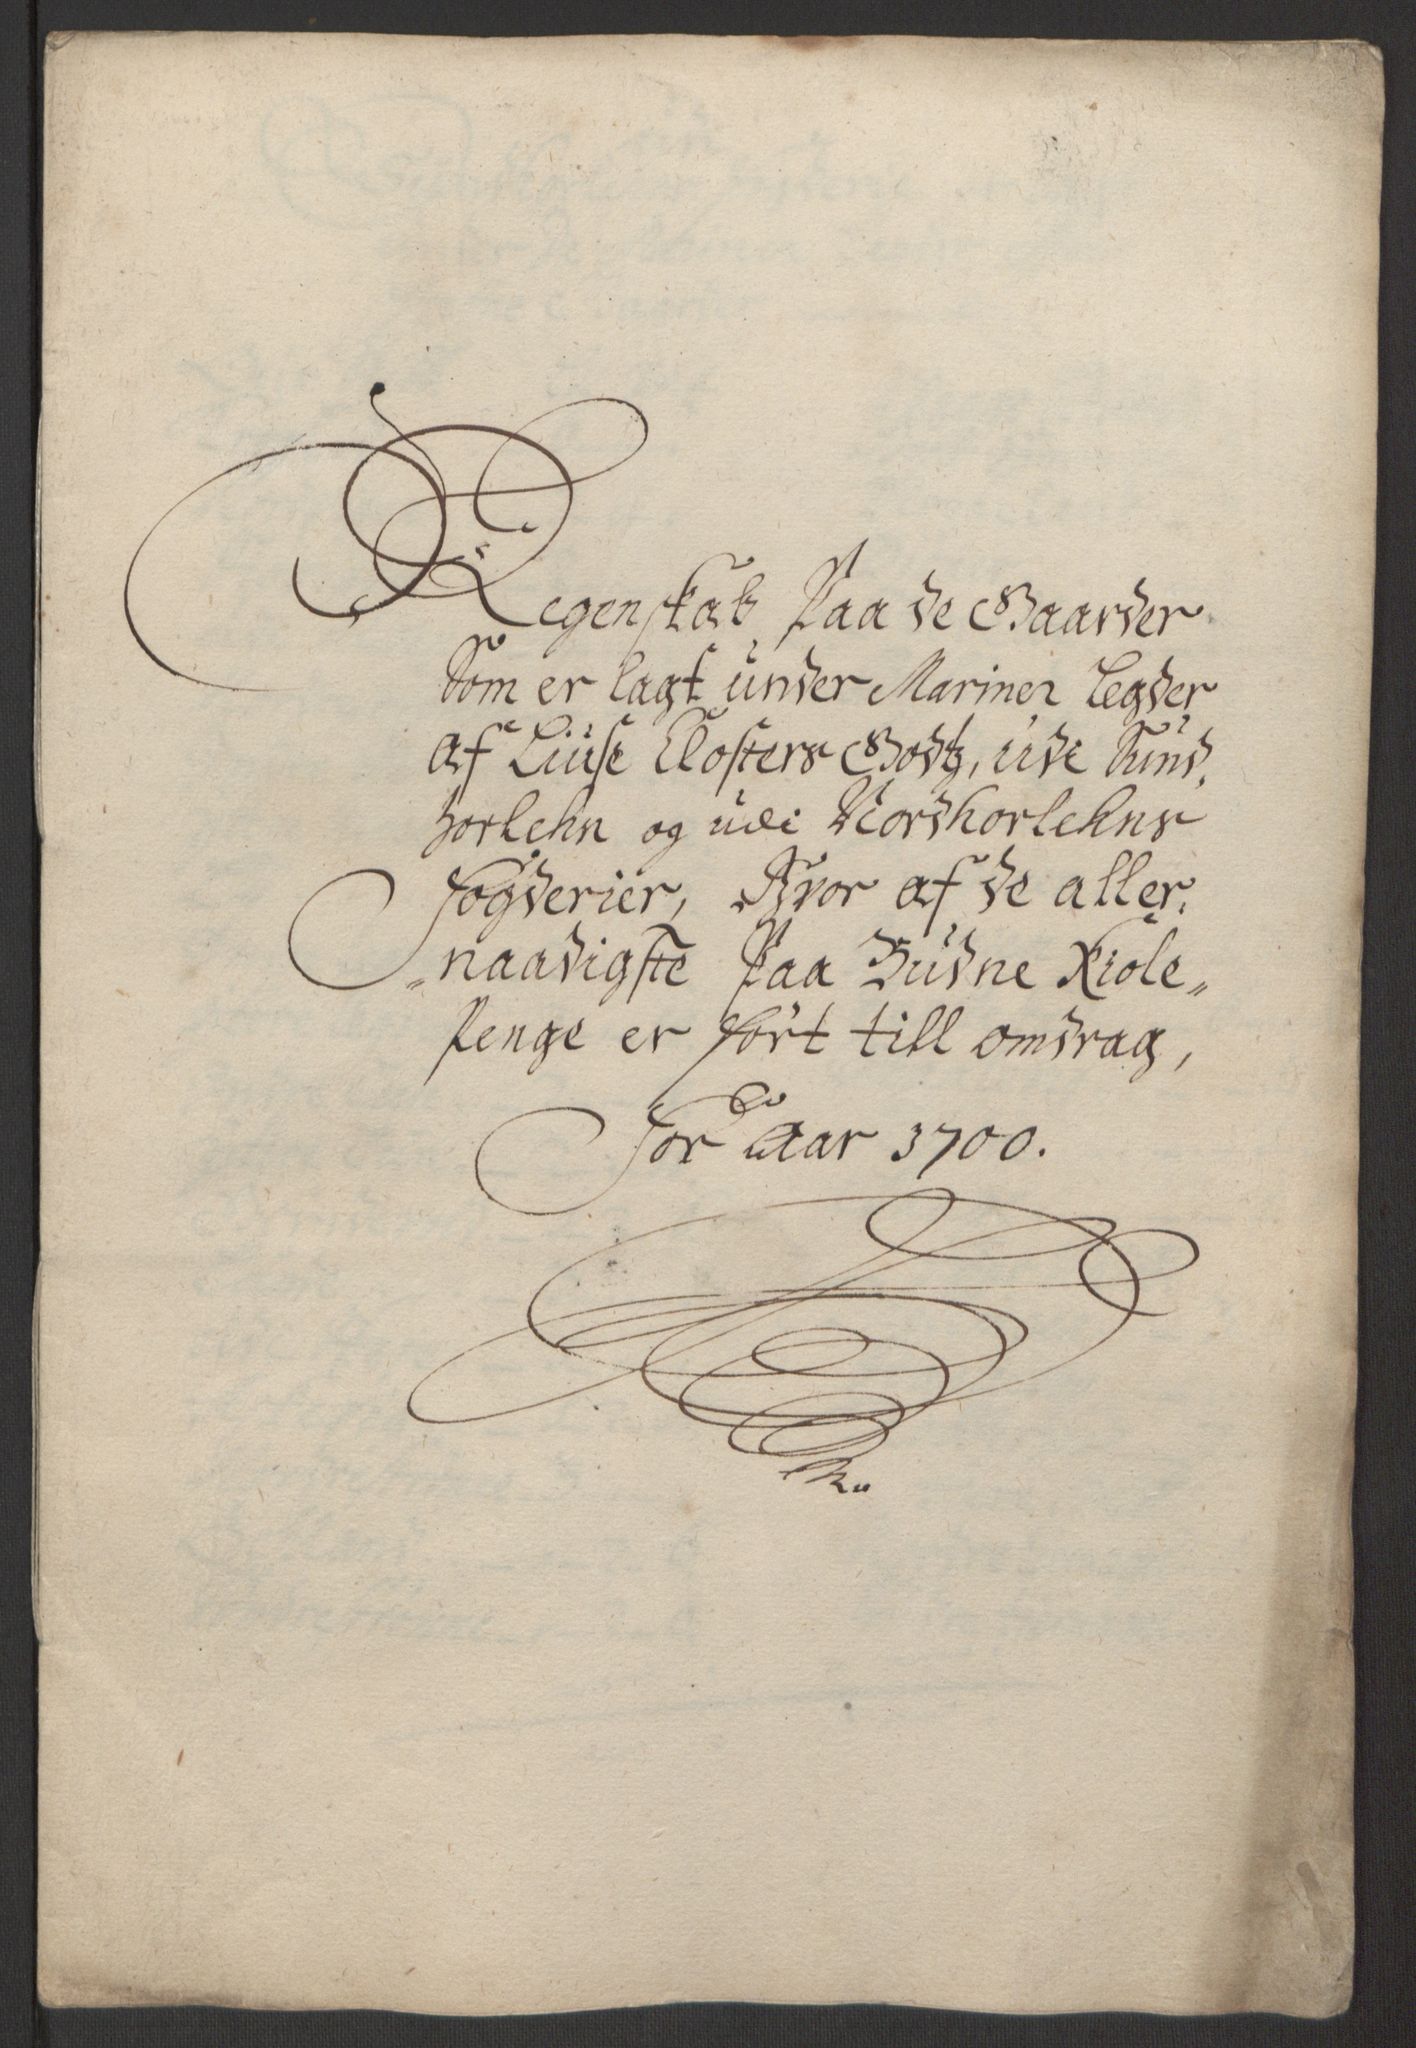 Regenskab Paa de Gaarder
Som er lagt under Mariner Legder
af Liuse Closters Godtz, ude Sund,
horlehn og udi Nordhorlehns
fogderier, Hvor af de aller,
„naadigste Paa Budne Kiole„
Penge er ført till omdrag,
For Aar 1700.